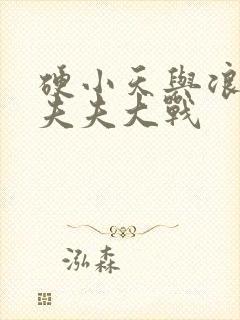 硬小天與浪
夫夫大戰
泓森